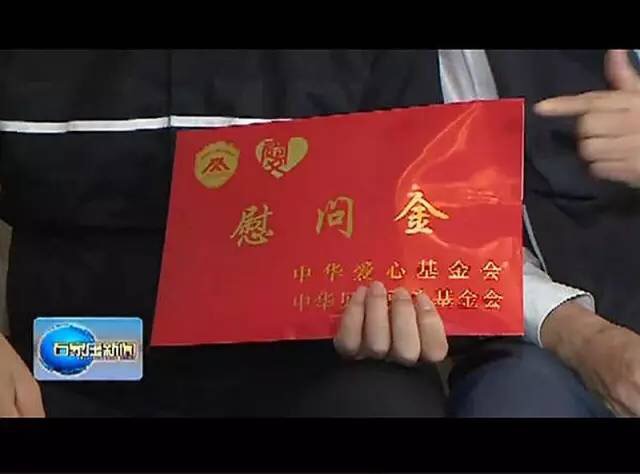 慰问金
中华爱心基金会
中华 基金会
石家庄新闻